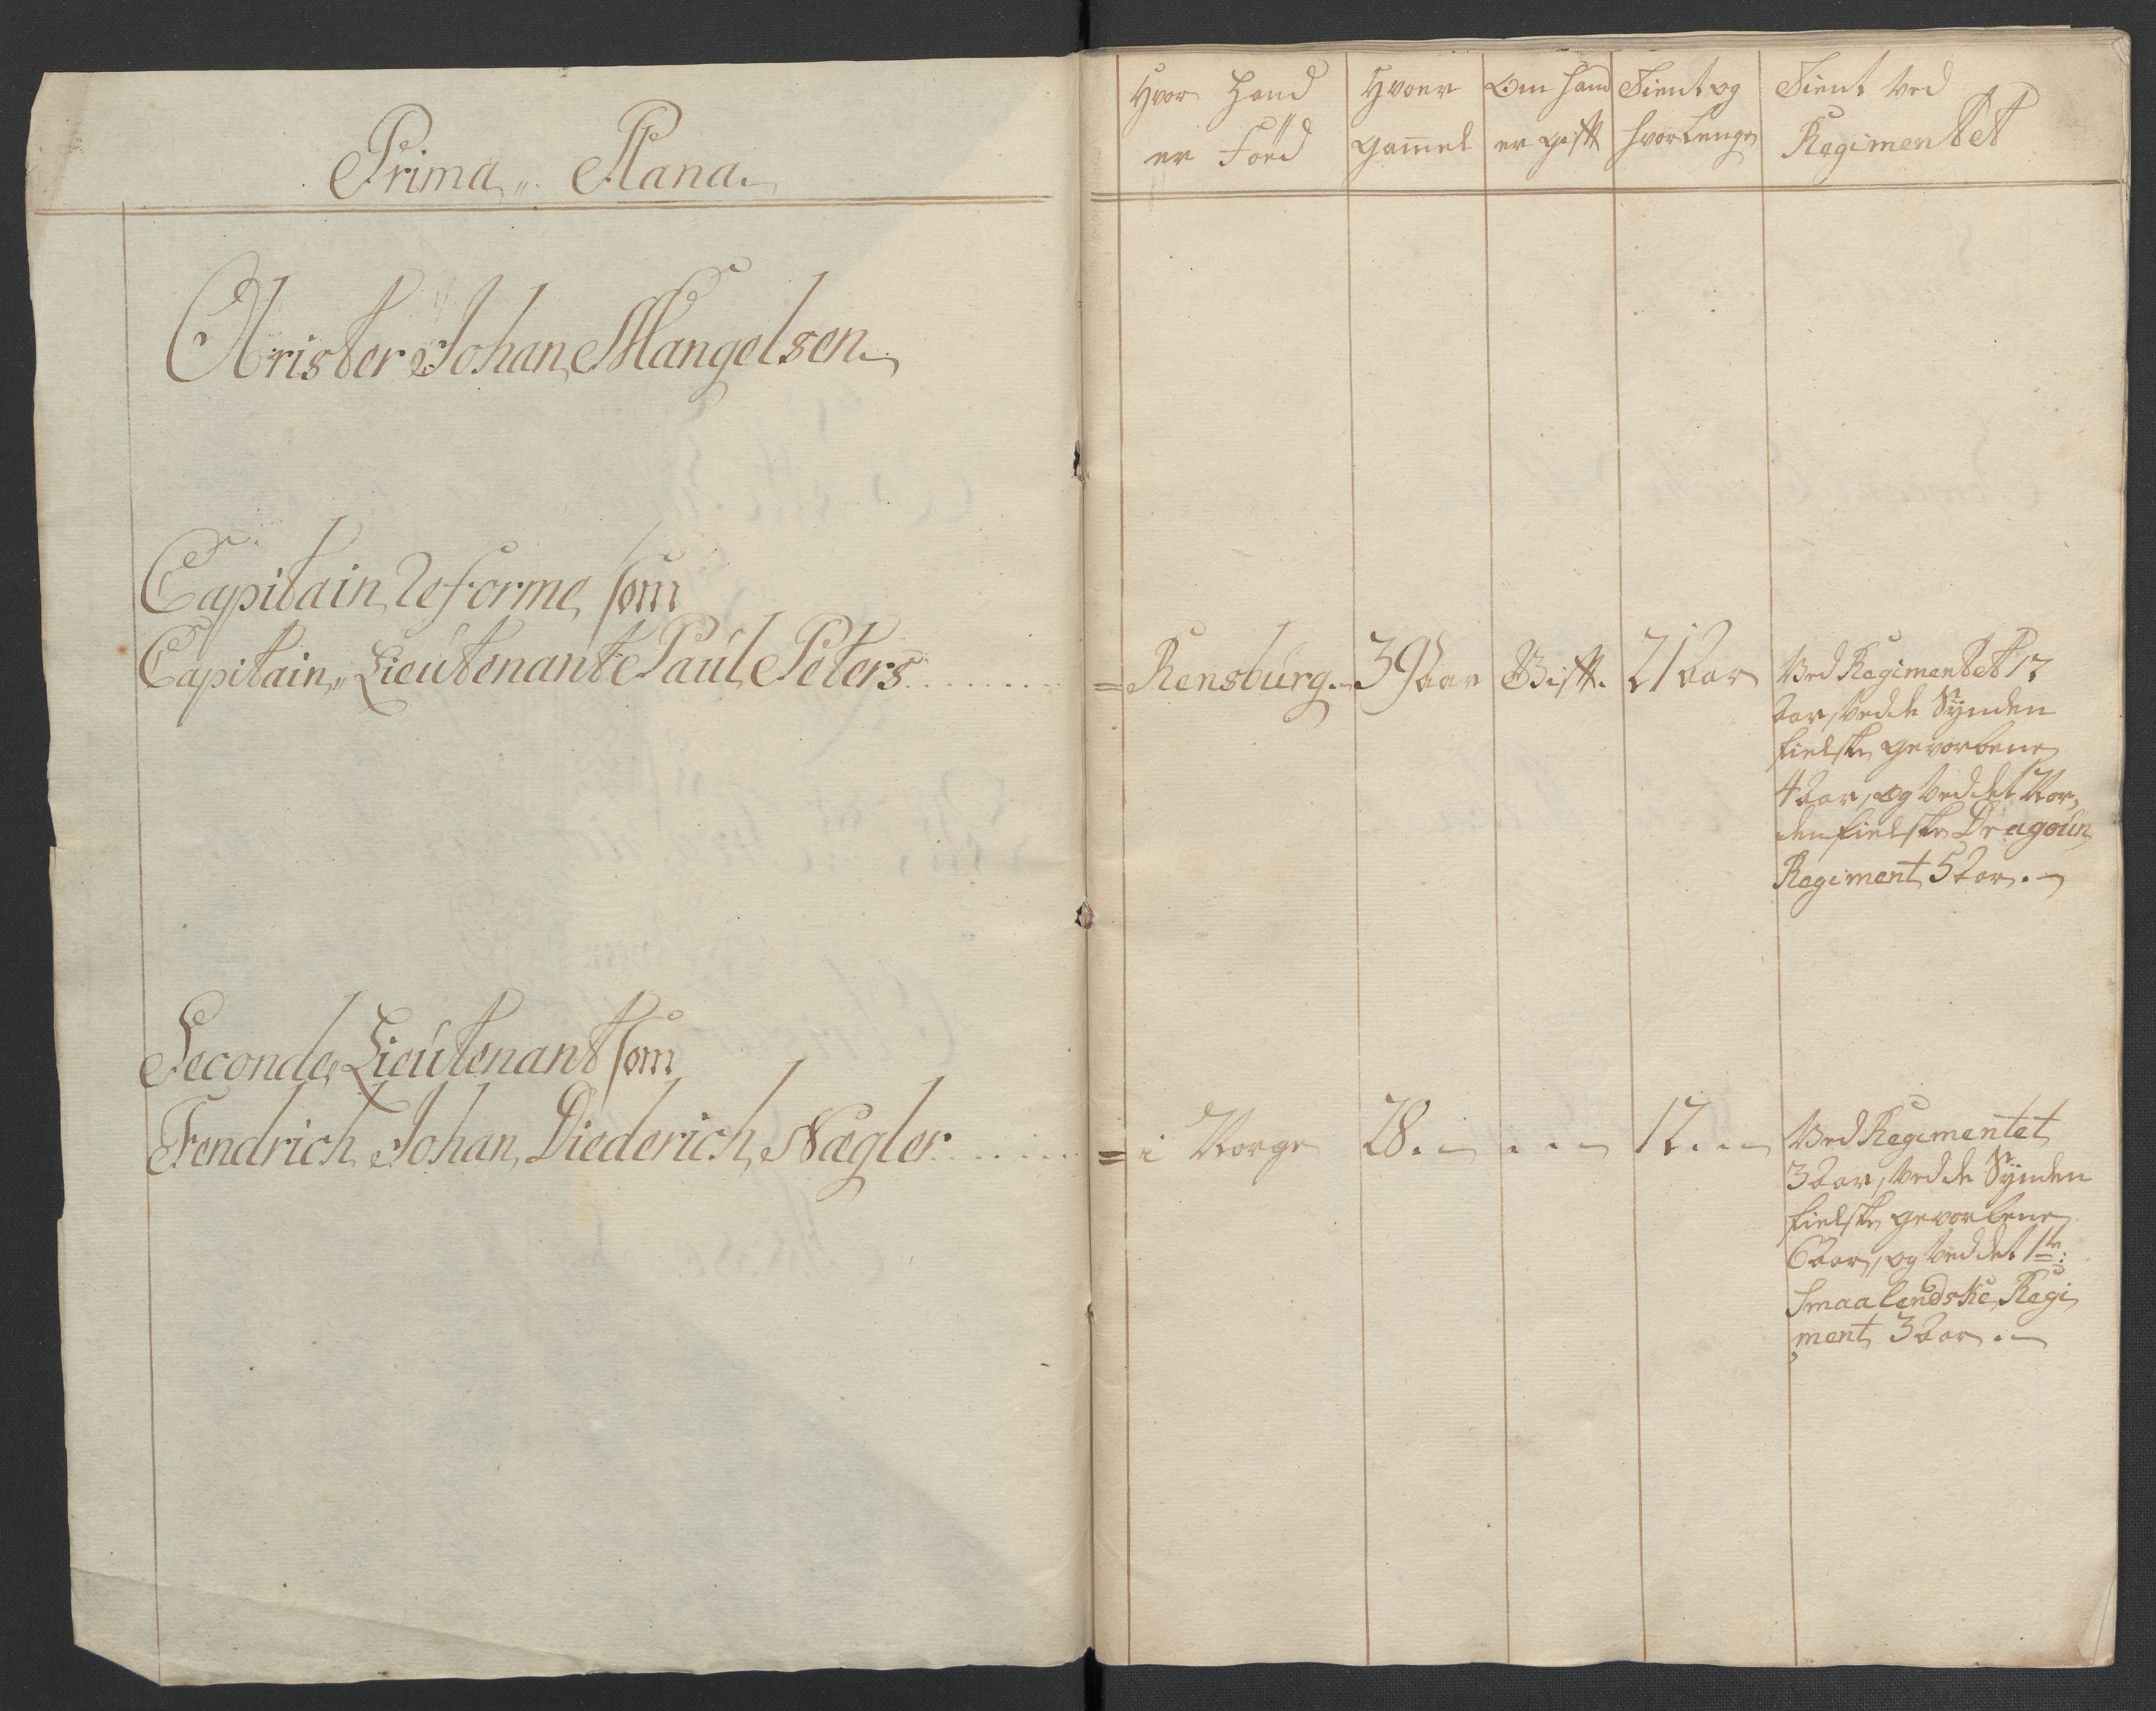 Prima Plana.
Obrister Johan Mangelsen
Capitain Reforme som
Capitain, Lieutenant Paul Peters
Seconde Lieutenant som
Fendrich Johan Diederich Nagler
Hvor Hand
er Føed
Hvor
gammel
Om hand
er gift
Tient og
hvor lenge
Tient Ved
Regimentet
= Rensburg. 39 aar Gift. 21 Aar
Ved Regimentet 12
Aar, Ved de Synden
fielske gevorbene
4 Aar, og Ved det Nor,
denfielske Dragoun
Regiment 5 Aar.
= i Norge 28. 12.
Ved Regimentet
3 Aar, Ved de Synden
fielske gevorbene
6 Aar, og Ved det 1te:
Smaalendske Regi
ment 3 Aar.